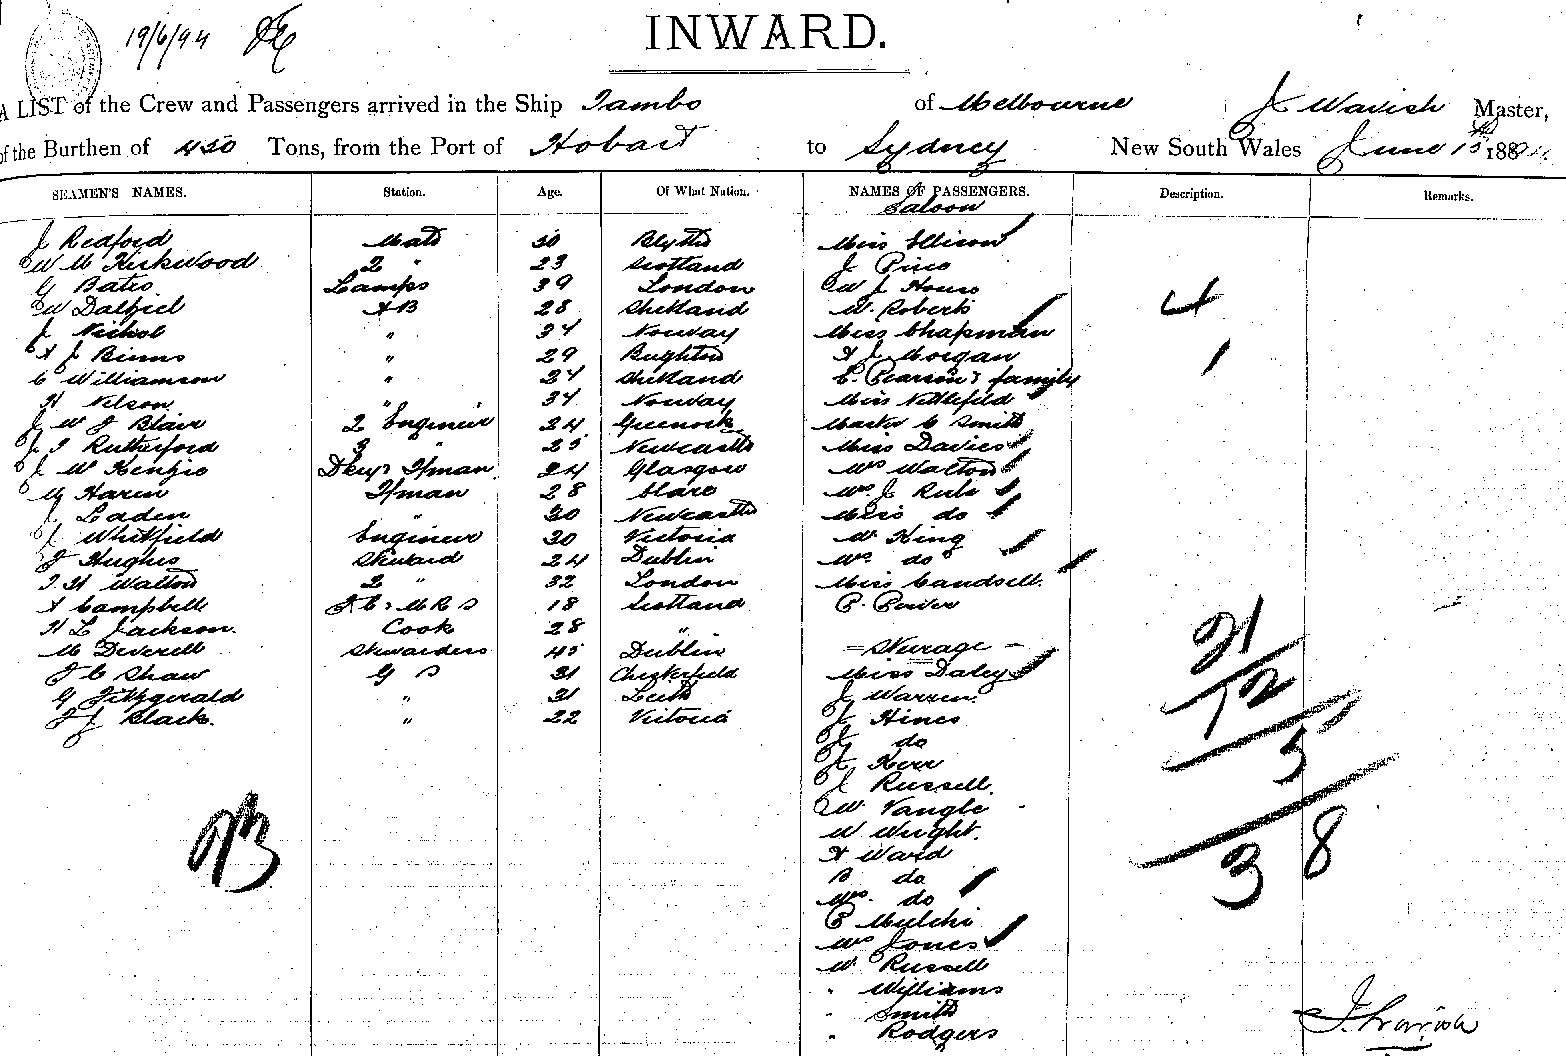 19/6/94
INWARD.
A LIST of the Crew and Passengers arrived in the Ship Tambo of Melbourne J Wavish Master,
of the Burthen of 450 Tons, from the Port of Hobart to Sydney New South Wales June 15th 1894
SEAMEN'S NAMES. Station. Age. Of What Nation. NAMES OF PASSENGERS. Description. Remarks.
Saloon
J Redford Mate 30 Blyth Miss Ellison
W M Kirkwood 2 " 23 Scotland J Price
G Bates Lamps 39 London W J House 4
W Dalziel AB 28 Shetland W. Roberts
J Nichol " 34 Norway Miss Chapman
A J Binns " 29 Brighton A J Morgan 1
C Williamson " 24 Shetland C. Pearson & family
H Nelson " 34 Norway Miss Nettlefold
J W J Blair 2 Engineer 24 Greenock Master C Smith
J T Rutherford 3 " 25 Newcastle Miss Davies
J W Kenzie Dkeyr Ffman 24 Glasgow Mrs Walton
M Haren Ffman 28 Clare Mrs J Rule
J Laden " 30 Newcastle Miss do
J Whitfield Engineer 30 Victoria W King
J Hughes Steward 24 Dublin Mrs do
T. H Walton 2 " 32 London Miss Candsell.
A Campbell 18 Scotland P. Power
H L Jackson. Cook 28 "
M Deverell Stewardess 45 Dublin Steerage
J C Shaw G S 31 Chesterfield Miss Daley
G Fitzgerald " 31 Leith J Warren
J J Black. " 22 Victoria J Hines
J do
J Kerr
J Russell.
W. Vangle
W Wright.
A Ward
B do
Mrs. do
P Mulchi
Mrs Jones
W Russell
" Williams
" Smith
" Rodgers
21
12
5
38
23
J. Wavish